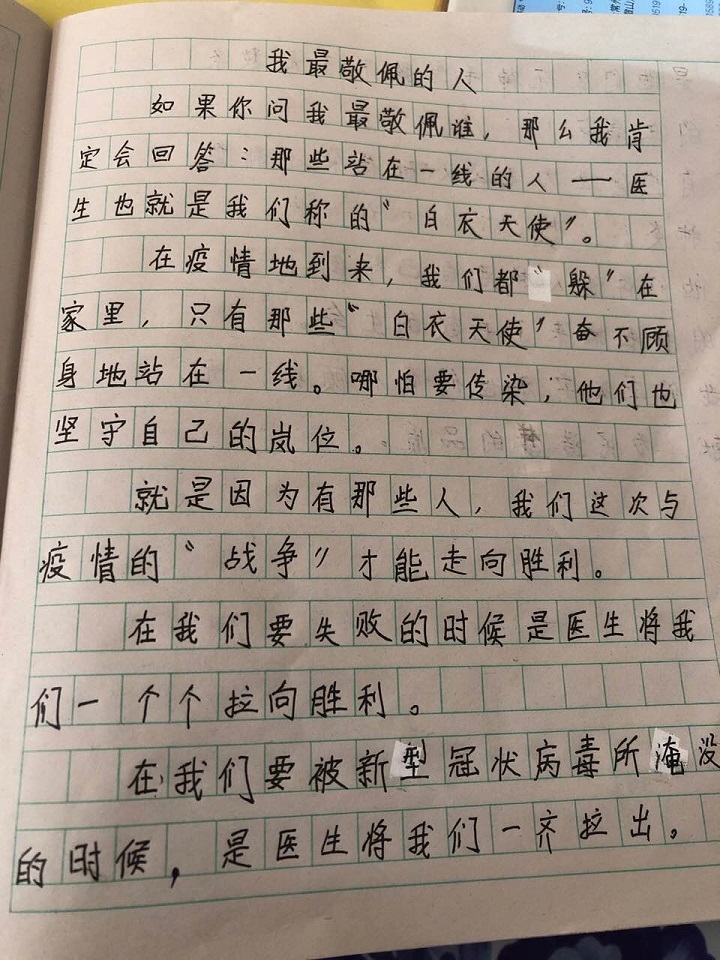 我最敬佩的人
如果你问我最敬佩谁，那么我肯
定会回答：那些站在一线的人——医
生也就是我们称的“白衣天使”。
在疫情地到来，我们都“躲”在
家里，只有那些“白衣天使”奋不顾
身地站在一线。哪怕要传染，他们也
坚守自己的岗位。
就是因为有那些人，我们这次与
疫情的“战争”才能走向胜利。
在我们要失败的时候是医生将我
们一个个拉向胜利。
在我们要被新型冠状病毒所淹没
的时候，是医生将我们一齐拉出。